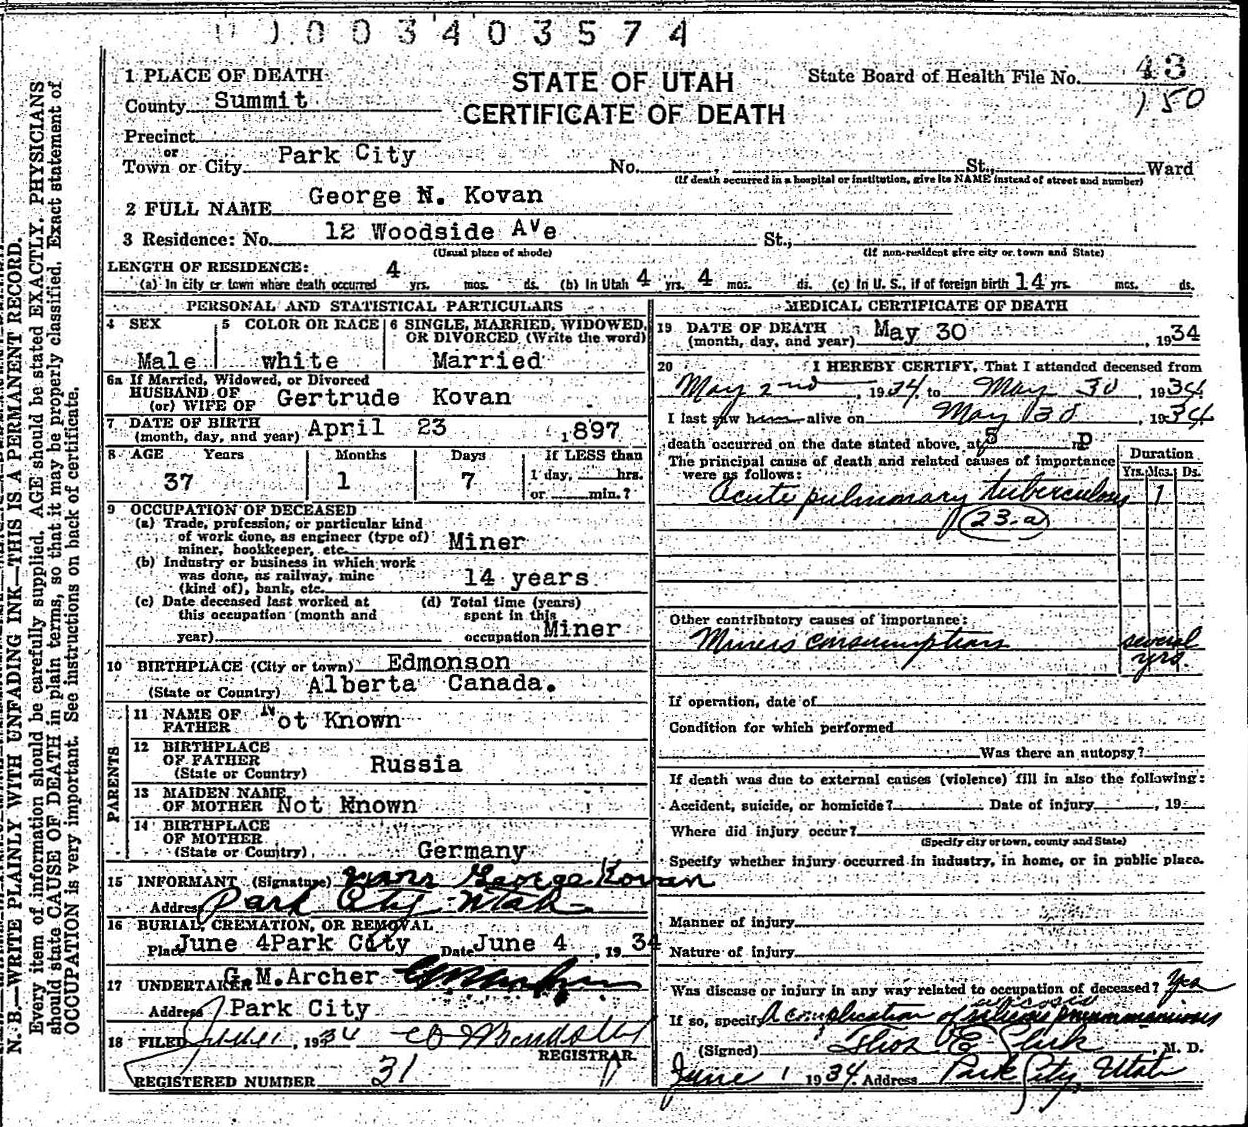 0 0 3 4 0 3 5 7 4
1 PLACE OF DEATH
County Summit
Precinct
or
Town or City Park City No. St., Ward
(If death occurred in a hospital or institution, give its NAME instead of street and number)
STATE OF UTAH
CERTIFICATE OF DEATH
State Board of Health File No. 43
150
2 FULL NAME George N. Kovan
3 Residence: No. 12 Woodside Ave St.,
(Usual place of abode) (If non-resident give city or town and State)
LENGTH OF RESIDENCE:
(a) In city or town where death occurred 4 yrs. mos. ds. (b) In Utah 4 yrs. 4 mos. ds. (c) In U. S., if of foreign birth 14 yrs. mos. ds.
PERSONAL AND STATISTICAL PARTICULARS
4 SEX
Male
5 COLOR OR RACE
white
6 SINGLE, MARRIED, WIDOWED, OR DIVORCED (Write the word)
Married
6a If Married, Widowed, or Divorced
HUSBAND OF
(or) WIFE OF Gertrude Kovan
7 DATE OF BIRTH
(month, day, and year) April 23 1897
8 AGE Years Months Days If LESS than
37 1 7 1 day, hrs.
or min.?
9 OCCUPATION OF DECEASED
(a) Trade, profession, or particular kind
of work done, as engineer (type of)
miner, bookkeeper, etc. Miner
(b) Industry or business in which work
was done, as railway, mine
(kind of), bank, etc. 14 years
(c) Date deceased last worked at
this occupation (month and
year)
(d) Total time (years)
spent in this
occupation Miner
10 BIRTHPLACE (City or town) Edmonson
(State or Country) Alberta Canada.
PARENTS
11 NAME OF
FATHER Not Known
12 BIRTHPLACE
OF FATHER
(State or Country) Russia
13 MAIDEN NAME
OF MOTHER Not Known
14 BIRTHPLACE
OF MOTHER
(State or Country) Germany
15 INFORMANT (Signature) George Kovan
Address Park City Utah
16 BURIAL, CREMATION, OR REMOVAL
Place June 4 Park City Date June 4, 1934
17 UNDERTAKER G. M. Archer
Address Park City
18 FILED June 1, 1934
REGISTRAR
REGISTERED NUMBER 31
MEDICAL CERTIFICATE OF DEATH
19 DATE OF DEATH
(month, day, and year) May 30, 1934
20 I HEREBY CERTIFY, That I attended deceased from
May 2nd, 1934, to May 30, 1934
I last saw him alive on May 30, 1934
death occurred on the date stated above, at 5 p m
The principal cause of death and related causes of importance
were as follows:
Duration
Yrs. Mos. Ds.
Acute pulmonary tuberculous 1
23-a
Other contributory causes of importance:
Miners consumption several
yrs.
If operation, date of
Condition for which performed
Was there an autopsy?
If death was due to external causes (violence) fill in also the following:
Accident, suicide, or homicide? Date of injury, 19
Where did injury occur?
(Specify city or town, county and State)
Specify whether injury occurred in industry, in home, or in public place.
Manner of injury
Nature of injury
Was disease or injury in any way related to occupation of deceased? Yes
If so, specify A complication of
(Signed) M. D.
June 1 1934 Address Park City, Utah
N. B.—WRITE PLAINLY WITH UNFADING INK—THIS IS A PERMANENT RECORD.
Every item of information should be carefully supplied. AGE should be stated EXACTLY. PHYSICIANS
should state CAUSE OF DEATH in plain terms, so that it may be properly classified. Exact statement of
OCCUPATION is very important. See instructions on back of certificate.